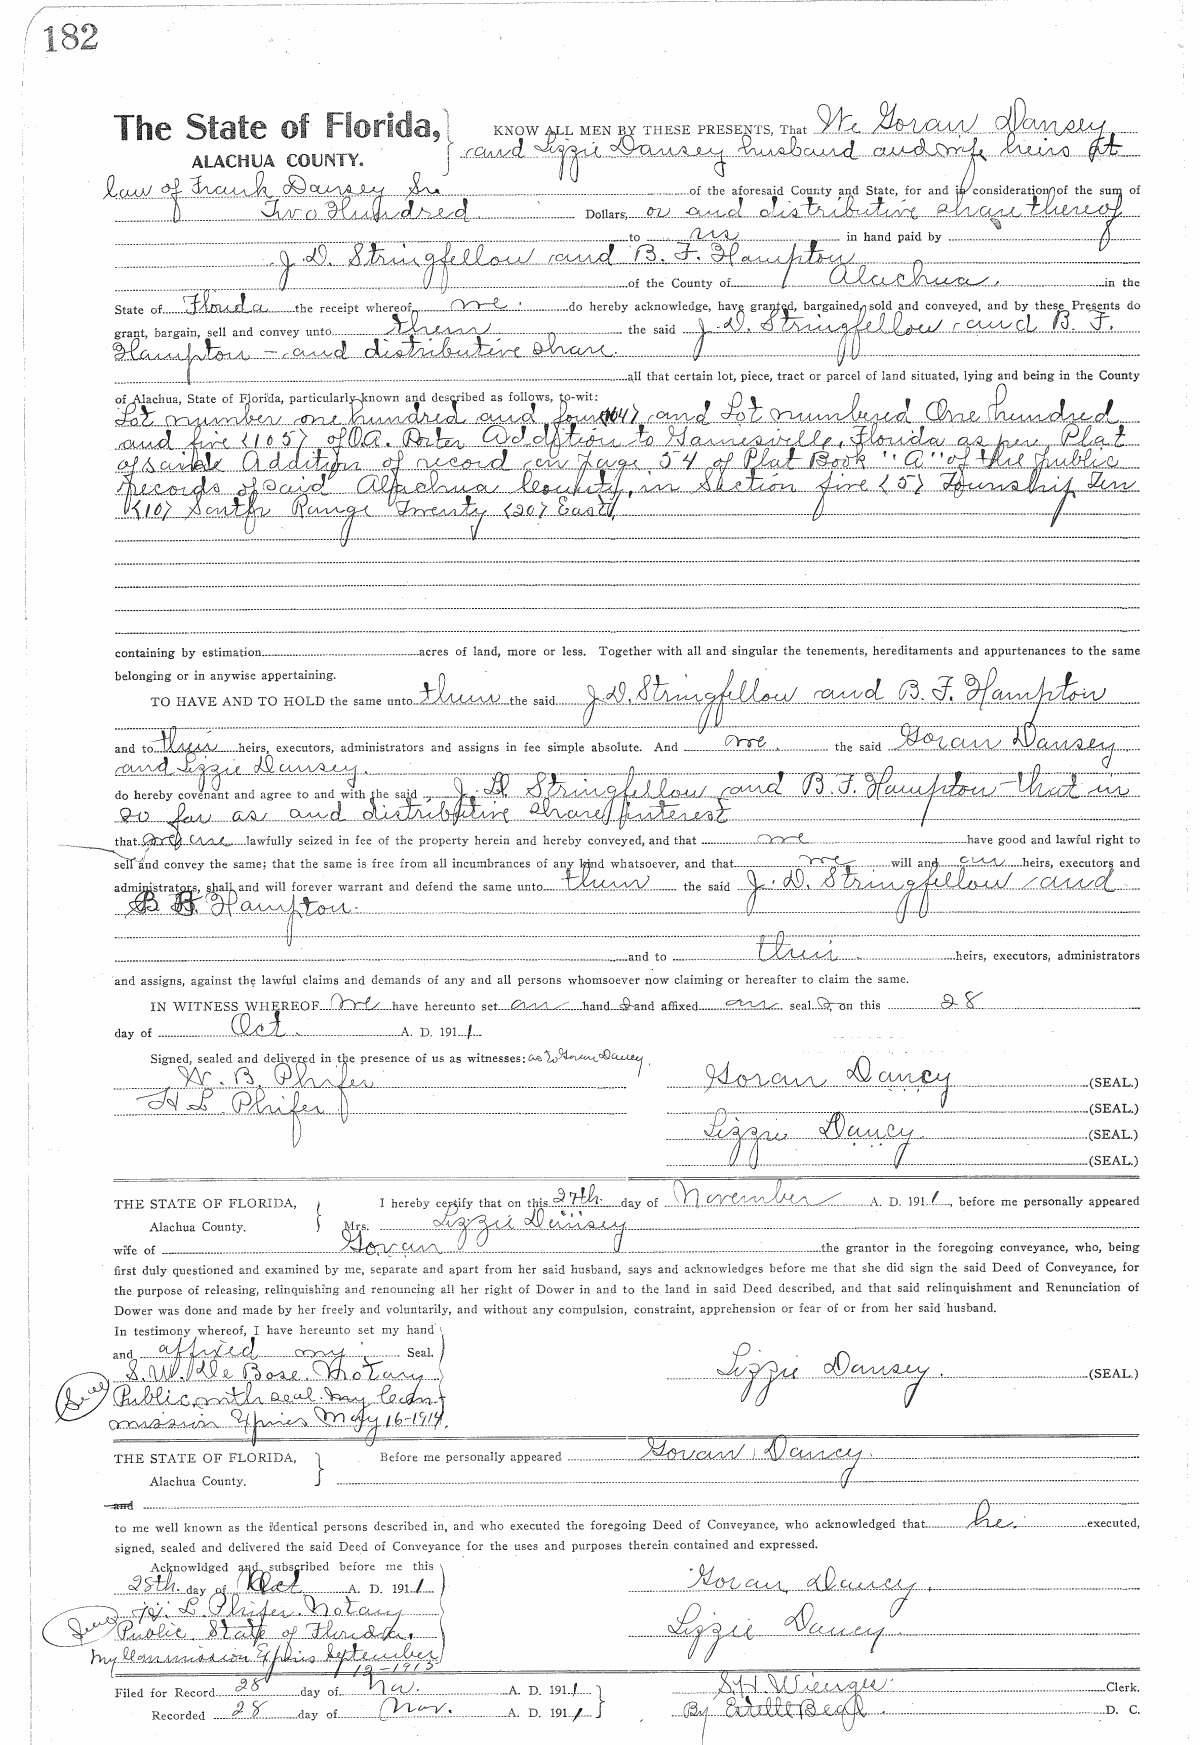 182
The State of Florida, KNOW ALL MEN BY THESE PRESENTS, That We Goran Dansey
ALACHUA COUNTY. and Lizzie Dansey husband and wife heirs at
law of Frank Dansey Sr. of the aforesaid County and State, for and in consideration of the sum of
Two Hundred Dollars, or and distributive share thereof
to us in hand paid by
J. D. Stringfellow and B. F. Hampton
of the County of Alachua, in the
State of Florida the receipt whereof we do hereby acknowledge, have granted, bargained, sold and conveyed, and by these Presents do
grant, bargain, sell and convey unto them the said J. D. Stringfellow and B. F.
Hampton - and distributive share.
all that certain lot, piece, tract or parcel of land situated, lying and being in the County
of Alachua, State of Florida, particularly known and described as follows, to-wit:
Lot number one hundred and four (104) and Lot numbered One hundred
and five (105) of O.A. Porter Addition to Gainesville, Florida as per Plat
of Addition of record on Page 54 of Plat Book "A" of the public
records of said Alachua County, in Section five (5) Township Ten
(10) South Range Twenty (20) East,
containing by estimation acres of land, more or less. Together with all and singular the tenements, hereditaments and appurtenances to the same
belonging or in anywise appertaining.
TO HAVE AND TO HOLD the same unto them the said J. D. Stringfellow and B. F. Hampton
and to their heirs, executors, administrators and assigns in fee simple absolute. And we the said Goran Dansey
and Lizzie Dansey.
do hereby covenant and agree to and with the said J. D. Stringfellow and B. F. Hampton - that in
so far as and distributive share interest
that we are lawfully seized in fee of the property herein and hereby conveyed, and that we have good and lawful right to
sell and convey the same; that the same is free from all incumbrances of any kind whatsoever, and that we will and our heirs, executors and
administrators, shall and will forever warrant and defend the same unto them the said J. D. Stringfellow and
B F. Hampton.
and to their heirs, executors, administrators
and assigns, against the lawful claims and demands of any and all persons whomsoever now claiming or hereafter to claim the same.
IN WITNESS WHEREOF We have hereunto set our hand s and affixed our seal s on this 28
day of Oct. A. D. 1911.
Signed, sealed and delivered in the presence of us as witnesses: as to Goran Dancy.
W. B. Phifer Goran Dancy (SEAL.)
H L Phifer (SEAL.)
Lizzie Dancy. (SEAL.)
(SEAL.)
THE STATE OF FLORIDA, I hereby certify that on this 27th day of November A. D. 1911, before me personally appeared
Alachua County. Mrs. Lizzie Dansey
wife of Govan the grantor in the foregoing conveyance, who, being
first duly questioned and examined by me, separate and apart from her said husband, says and acknowledges before me that she did sign the said Deed of Conveyance, for
the purpose of releasing, relinquishing and renouncing all her right of Dower in and to the land in said Deed described, and that said relinquishment and Renunciation of
Dower was done and made by her freely and voluntarily, and without any compulsion, constraint, apprehension or fear of or from her said husband.
In testimony whereof, I have hereunto set my hand
and affixed my Seal.
S. W. De Bose. Notary Lizzie Dansey. (SEAL.)
Seal Public with seal. My Com-
mission Expires May 16-1914.
THE STATE OF FLORIDA, Before me personally appeared Govan Dancy.
Alachua County.
and
to me well known as the identical persons described in, and who executed the foregoing Deed of Conveyance, who acknowledged that he. executed,
signed, sealed and delivered the said Deed of Conveyance for the uses and purposes therein contained and expressed.
Acknowldged and subscribed before me this
28th day of Oct A. D. 1911. Goran Dancy.
Seal H. L. Phifer. Notary
Public State of Florida. Lizzie Dancy.
My Commission Expires September
12-1915
Filed for Record 28 day of A. D. 1911. S. H. Wienges Clerk.
Recorded 28 day of Nov. A. D. 1911. By Estelle D. C.